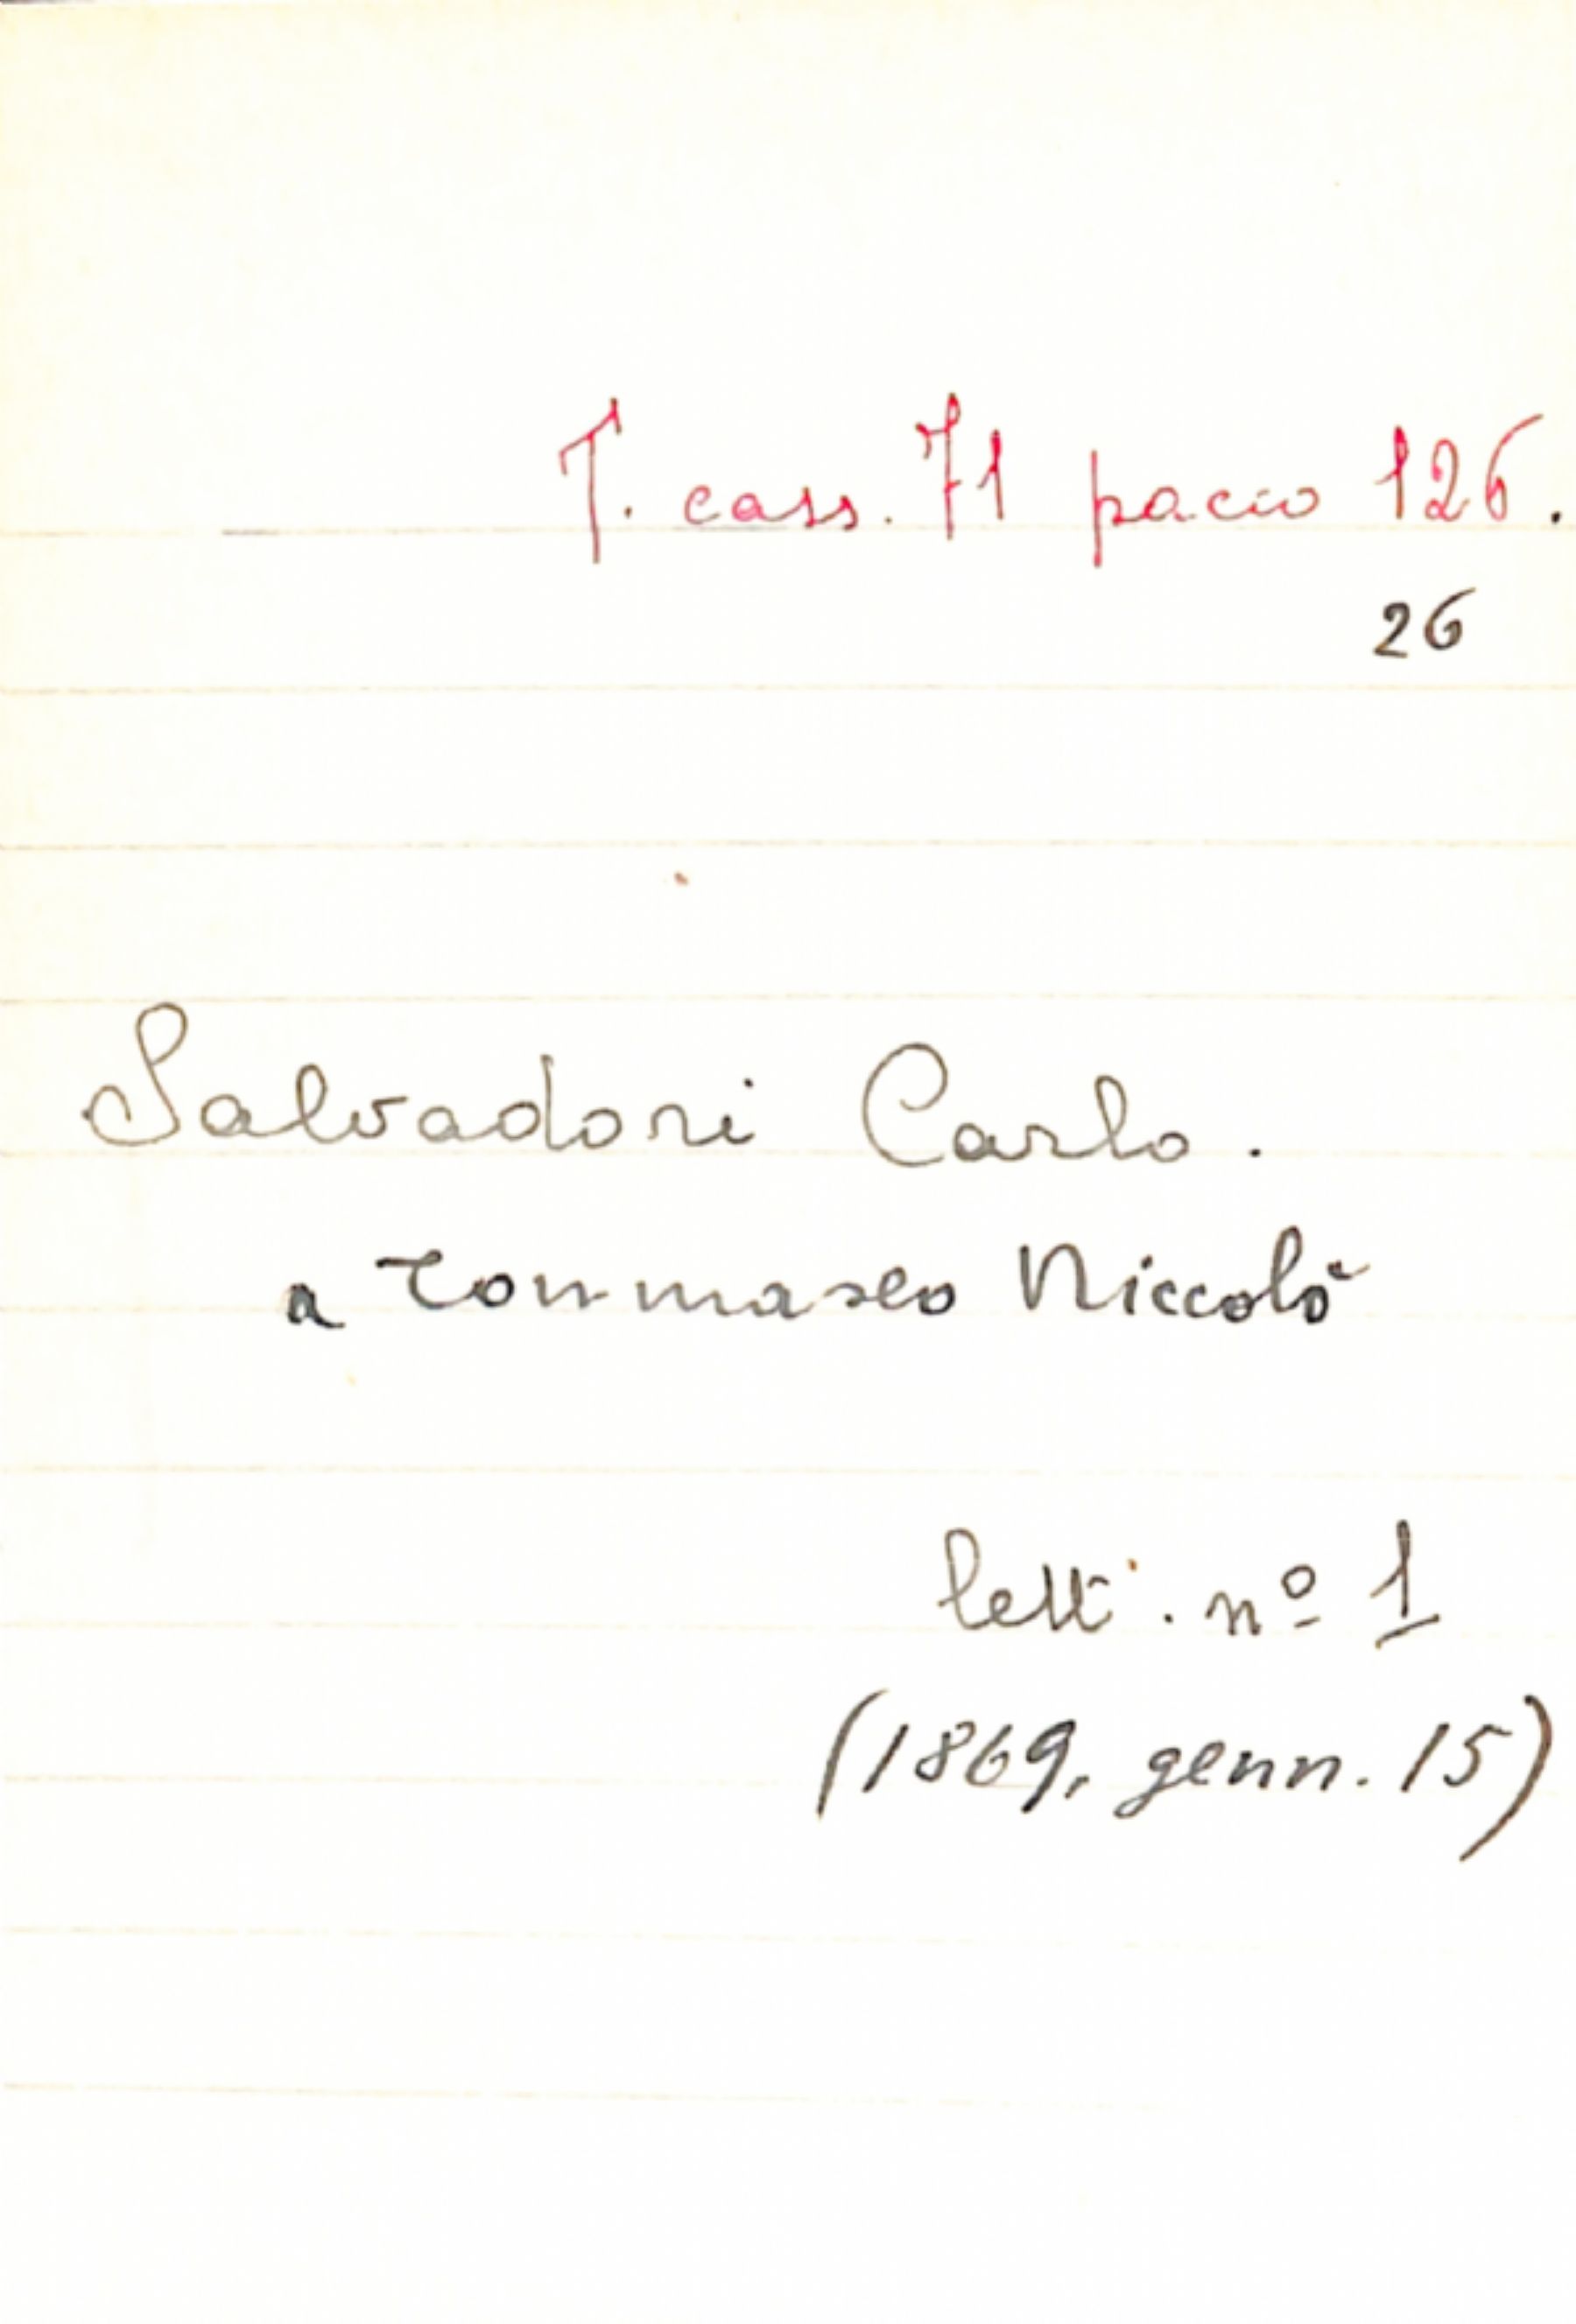 T. cass. 71 pacco 126.
26
Salvadori Carlo.
a Tommaseo Niccolò
lett. nº 1
(1869, genn. 15)